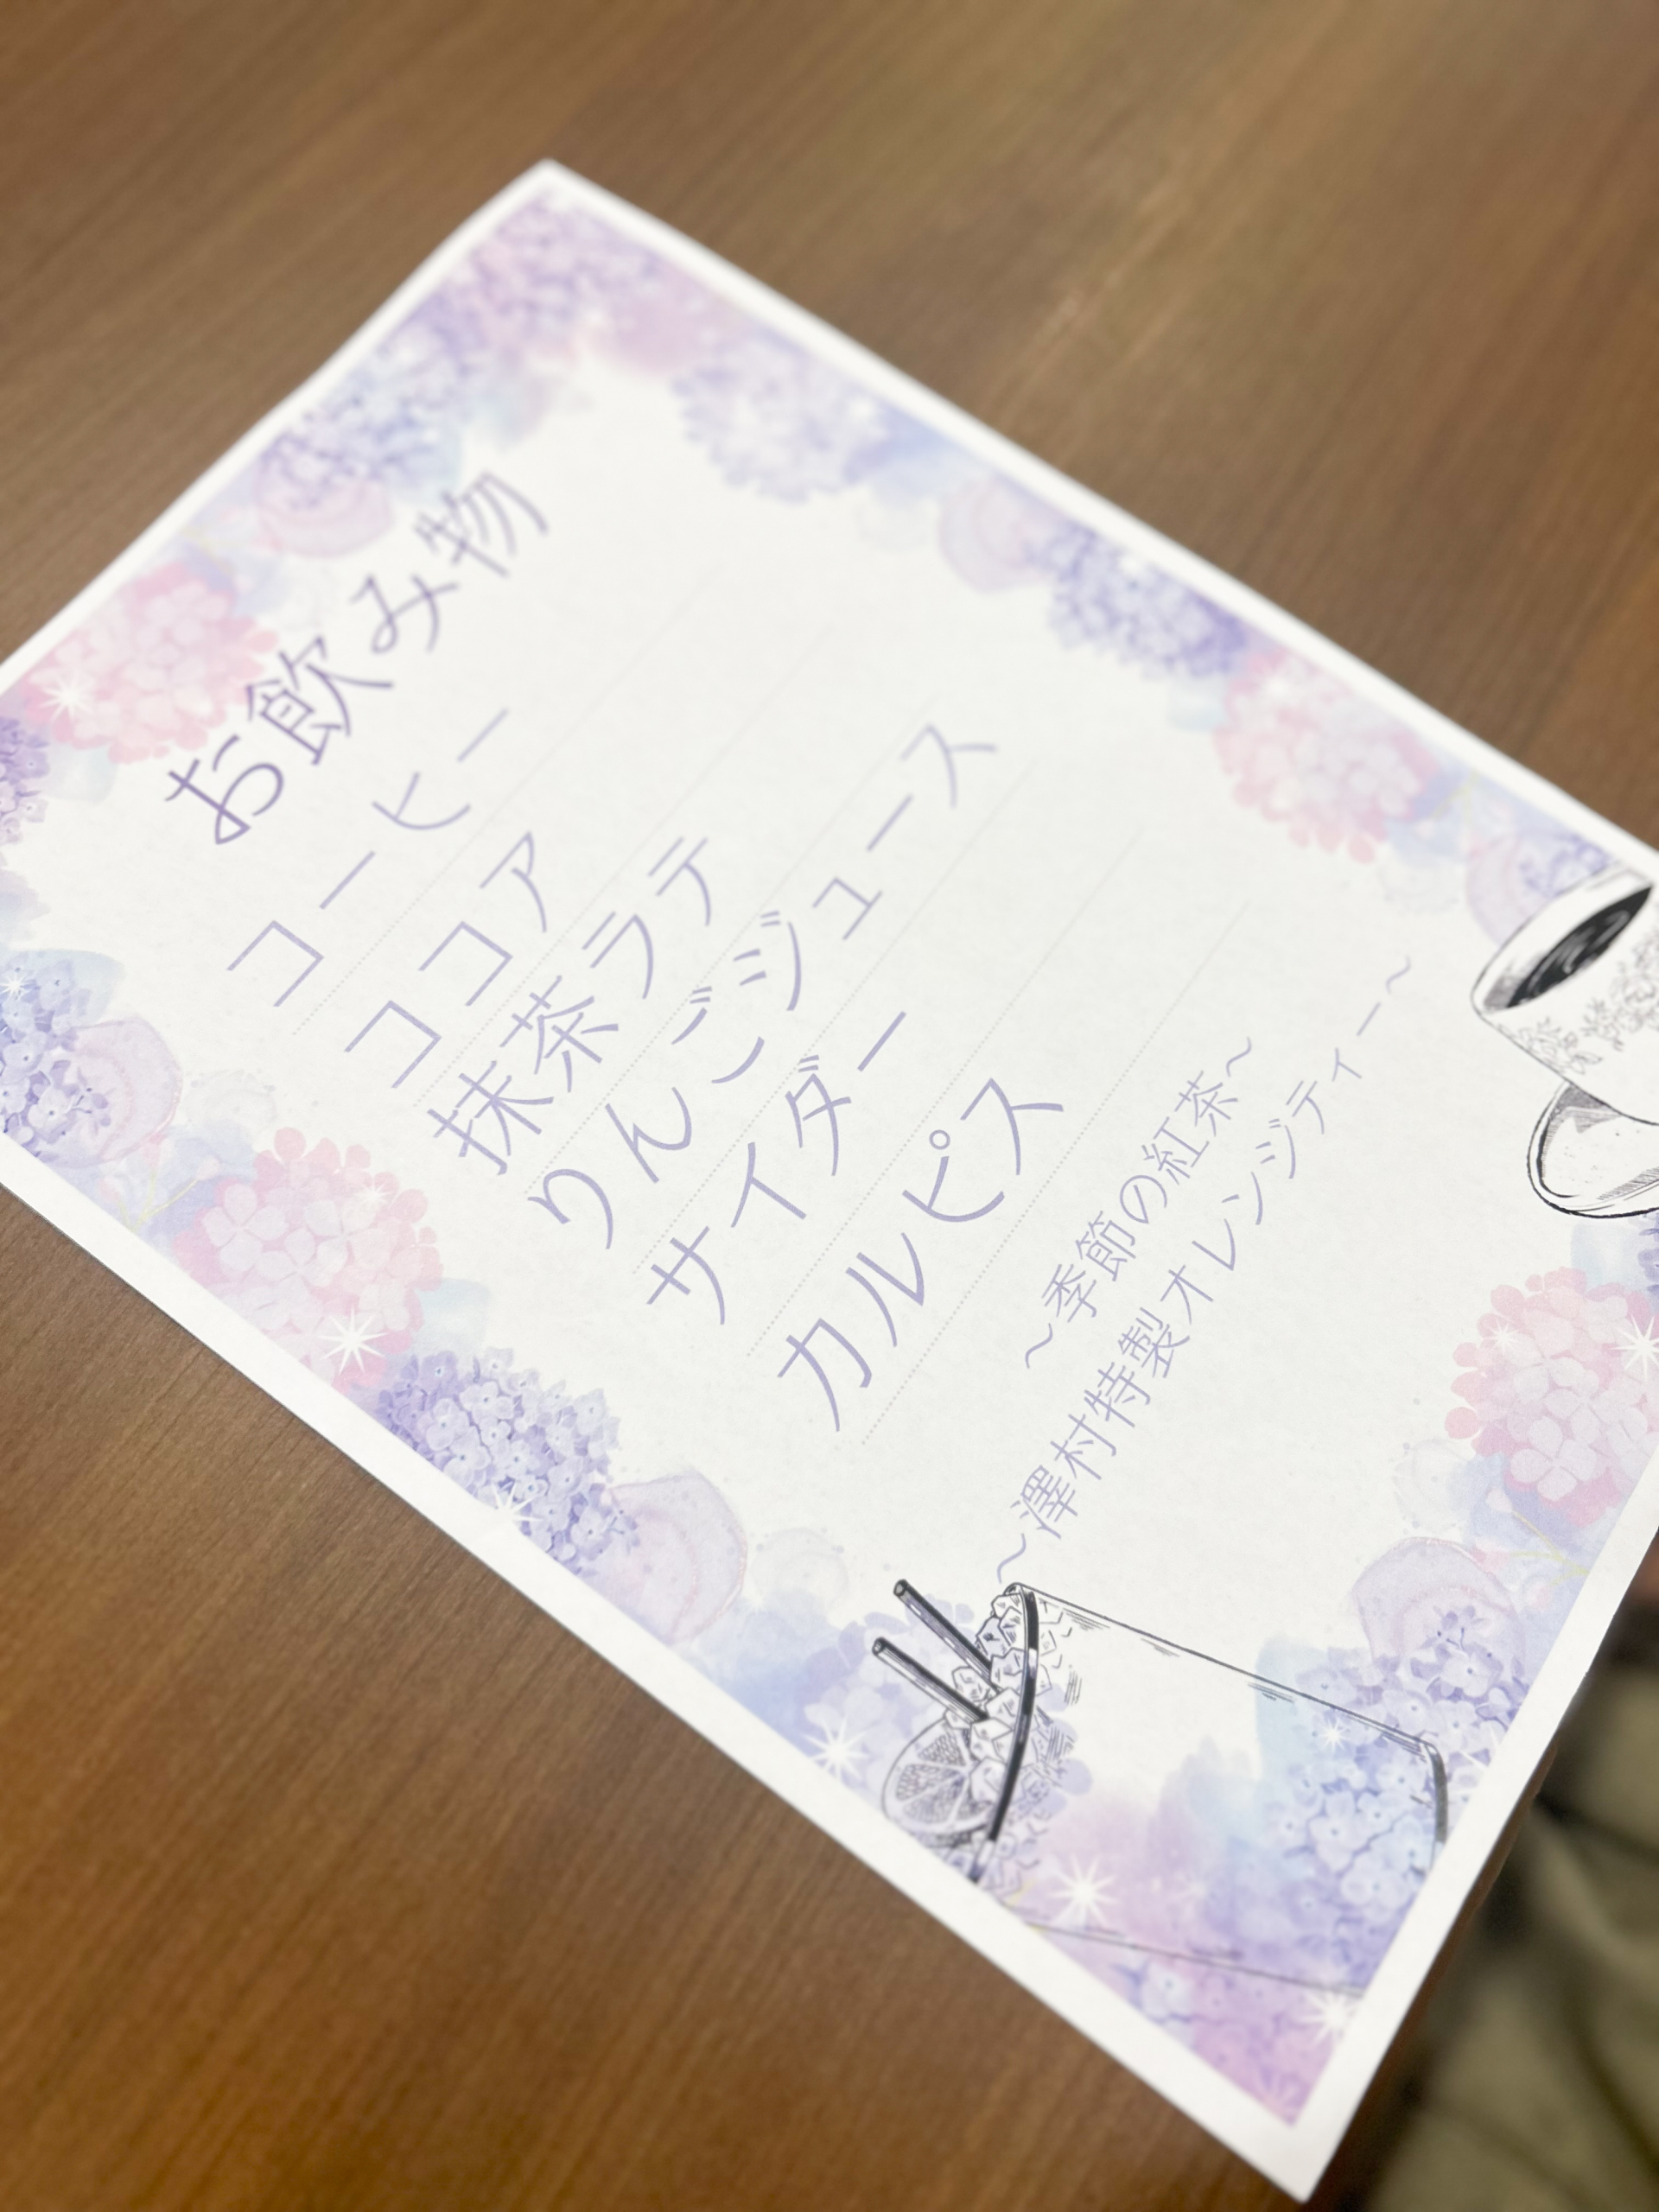 お飲み物
コーヒー
ココア
抹茶ラテ
りんごジュース
サイダー
カルピス
〜季節の紅茶〜
〜澤村特製オレンジティー〜